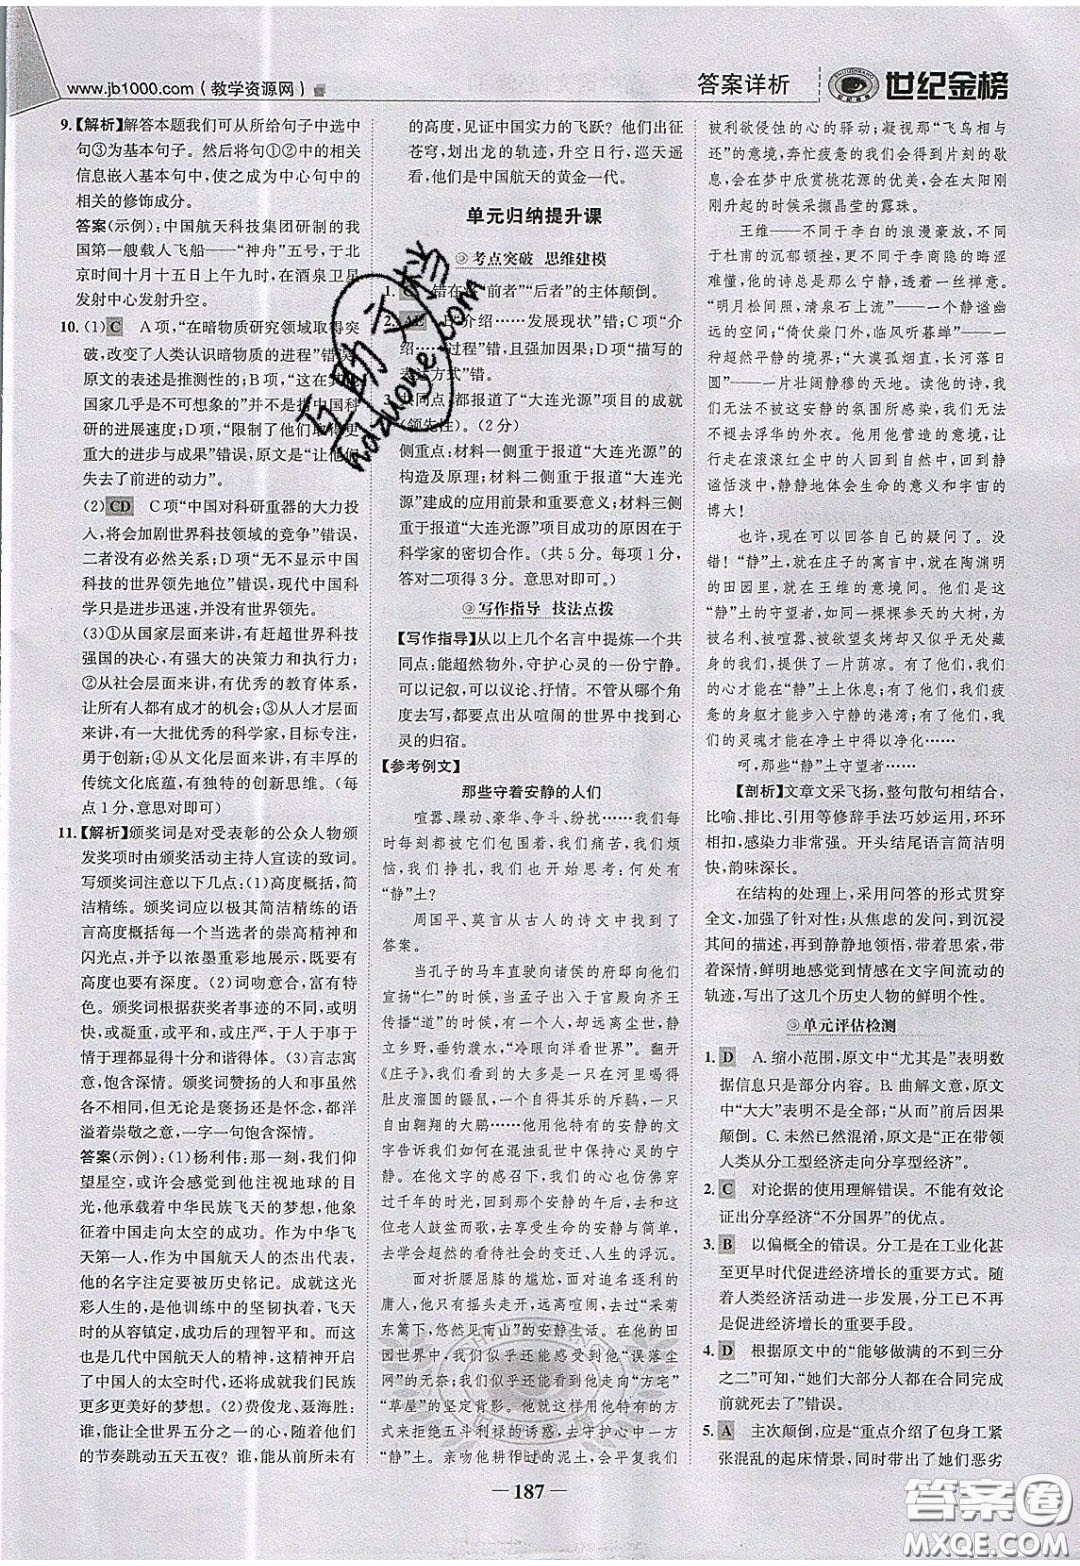 www.jb1000.com(教学资源网)
答案详析
世纪金榜
9.【解析】解答本题我们可从所给句子中选中
句③为基本句子。然后将句①②中的相关
信息嵌入基本句中,使之成为中心句中相
关的修饰成分。
答案(示例):中国航天科技集团研制的我
国第一艘载人飞船——“神舟”五号,于北
京时间十月十五日上午九时,在酒泉卫星
发射中心发射升空。
10.(1) C A项,“在暗物质研究领域取得突
破,改变了人类认识暗物质的进程”错误,
原文的表述是推测性的;B项,“这在
国家几乎是不可想象的”并不是指中国科
研的进展速度;D项,“限制了他们取得更
重大的进步与成果”错误,原文是“让他们
失去了前进的动力”。
(2) CD C项“中国对科研重器的大力投
入,将会加剧世界科技领域的竞争”错误,
二者没有必然关系;D项“无不显示中国
科技的世界领先地位”错误,现代中国科
学只是进步迅速,并没有世界领先。
(3)①从国家层面来讲,有赶超世界科技
强国的决心,有强大的决策力和执行力;
②从社会层面来讲,有优秀的教育体系,
让所有人都有成才的机会;③从人才层面
来讲,有一大批优秀的科学家,目标专注,
勇于创新;④从文化层面来讲,有丰厚的
传统文化底蕴,有独特的创新思维。(每
点1分,意思对即可)
11.【解析】颁奖词是对受表彰的公众人物颁
发奖项时由颁奖活动主持人宣读的致词。
写颁奖词注意以下几点:(1)高度概括,简
洁精练。颁奖词应以极其简洁精练的语
言高度概括每个当选者的崇高精神和
闪光点,并予以浓墨重彩地展示,既要有
高度也要有深度。(2)词吻意合,富有情
感。颁奖词根据获奖者事迹的不同,或明
快,或凝重,或平实,或庄严,于人于事于
情于理都显得十分和谐得体。(3)言志寓
意,饱含深情。颁奖词赞扬的人和事虽然
不同,但不管是赞誉还是怀念,都将洋
溢着崇敬之意,一字一句饱含深情。
答案(示例):(1)杨利伟:那一刻,我们仰
望星空,或许会感觉到他注视地球的目
光。他承载着中华民族飞天的梦想,他象
征着中国走向太空的成功。作为中华飞
天第一人,作为中国航天人的杰出代表,
他的名字注定要被历史铭记。成就这光
彩人生的,是他训练中的坚韧执着,飞天
时的从容镇定,成功后的理智平和。而这
也是几代中国航天人的精神,这精神开启
了中国人的太空时代,还将成就我们民族
更多更美好的梦想。(2)费俊龙、聂海胜:
谁,能让全世界五分之一的心灵一起飞
翔?谁,能让两双脚印,丈量着十三亿人
的节奏跳动五天五夜?谁,能从前所未有
的高度,见证中国实力的飞跃?他们,征
苍穹,划出龙的轨迹,升空日行,巡天遥
看,他们是中国航天的黄金一代。
单元归纳提升课
考点突破 思维建模
1. 错在 “前者”“后者”的主体颠倒。
2. AE 介绍……发展现状”错;C项“介
绍 过程”错,且强加因果;D项“描写的
表达方式”错。
3. 共同点:都报道了“大连光源”项目的成就
(领先性)。(2分)
侧重点:材料一侧重于报道“大连光源”的
构造及原理;材料二侧重于报道“大连光
源”建成的应用前景和重要意义;材料三侧
重于报道“大连光源”项目成功的原因在于
科学家的密切协作。(共5分。每项1分,
答对二项得3分。意思对即可。)
写作指导 技法点拨
【写作指导】从以上几个名言中提炼一个共
同点:能超然物外,守护心灵的一份宁静。
可以记叙,可以议论、抒情。不管从哪个角
度去写,都要点出从喧闹的世界中寻找心
灵的归宿。
【参考例文】
那些守着安静的人们
喧嚣、躁动、豪华、争斗、纷扰……我们每
时每刻都被它们包围着,我们痛苦,我们无
奈,我们挣扎,我们也时时思考:何处有
“静”土?
周国平、莫言从古人的诗文中找到了
答案。
当孔子的马车直驶向诸侯的府邸向他们
宣扬“仁”的时候,当孟子出入于宫殿向齐王
传播“道”的时候,有一个人却远离尘世,静
立乡野,垂钓濮水,“冷眼向洋看世界”。翻开
《庄子》,我们看到的大多是一只在河里喝得
肚皮溜圆的鼹鼠,一个自得其乐的斥鷃,一只
自由翱翔的大鹏……他用一个个安静的文
字告诉我们如何在混浊乱世中保持心灵的
安宁与诗意。在他文字的感召下,我们穿越
过千年的时光,一起守着安静的午后,与这
位老人鼓盆而歌,一起享受生命的安静与简单,
超然地看待社会的变迁、人生的浮沉。
面对折腰屈膝的尴尬,面对追名逐利的
庸人,他只有摇头走开。喧闹中,他走向“采菊
东篱下,悠然见南山”的安静生活。在他的田
园世界中,我们似乎还能感受到他“误落尘
网”的无奈;我们似乎还能看到他走向“方宅”
“草屋”的坚定背影。他就这样用归隐田园的
方式来拒绝五斗利禄的诱惑,去守护心中的一
方净土。亲吻他耕作过的泥土,会平复我们
被利欲侵蚀的心的驿动;凝视那“飞鸟相与
还”的意境,奔忙疲惫的我们会得到片刻的歇
息,会在梦中欣赏桃花源的优美,会在太阳刚
刚升起的时候采撷晶莹的露珠。
王维——不同于李白的浪漫豪放,不同
于杜甫的沉郁顿挫,更不同于李商隐的晦涩
难懂,他的诗总是那么宁静,透着一丝禅意。
“明月松间照,清泉石上流”——一个静谧幽
远的空间;“倚仗柴门外,临风听暮蝉”——一
个超然平静的境界;“大漠孤烟直,长河落日
圆”——一片壮阔静穆的天地。读他的诗,我
们总是被那么安静的氛围所感染,我们会不自
觉地褪去浮华的外衣。他用他营造的意境,让
行走在滚滚红尘中的人回到自然,感受到静
谧恬淡,静静地体会生命的意义和宇宙的
博大!
也许,现在可以回答自己的疑问了。没
错!“静”土,就在庄子的寓言里,就在陶渊明
的田园里,就在王维的意境间。他们是
“静”土的守望者,如同一棵棵参天的大树,为
我们这些被喧嚣、被欲望炙烤却又似乎无处藏
身的人们,提供了一片荫凉。有了他们,我们
的心才能在“静”土上休息;有了他们,我们疲
惫的身躯才能投入宁静的港湾;有了他们,我
们的灵魂才能在净土中得以净化……
呵,那些“静”土守望者……
【剖析】文章文采飞扬,整句散句相结合,
比喻、排比、引用等修辞手法巧妙运用,环环
相扣,感染力非常强。开头结尾语言简洁明
快,韵味深长。
在结构的处理上,采用问答的形式贯穿
全文,加强了针对性;从焦虑的发问,到沉浸
其间的描述,再到静静地领悟,带着思索,带
着深情,鲜明地感受到情感在文字间流动的
轨迹,写出了这几个历史人物的鲜明个性。
单元评估检测
1. D A.缩小范围,原文中“尤其是”表明数
据信息只是部分内容。B.曲解文意,原文
中“大大”表明不是全部;“从而”前后因果
颠倒。C.未然已然混淆,原文是“正在带领
人类从分工型经济走向分享型经济”。
2. C 对论据的使用理解错误。不能有效论
证出分享经济“不分国界”的优点。
3. B 以偏概全的错误。分工是在工业化甚
至更早时代促进经济增长的重要方式。随
着人类经济活动进一步发展,分工已经不再
是促进经济增长的重要手段。
4. D 根据原文中的“能够做满的不到三分
之二”可知,“她们大部分人都在合同完成
前就死去了”错误。
5. A 主次颠倒,应是“重点介绍了包身工紧
张混乱的起床情景,同时带出了她们恶劣
— 187 —
互助文档
hdzuoye.com
答案圈
MXQE.COM